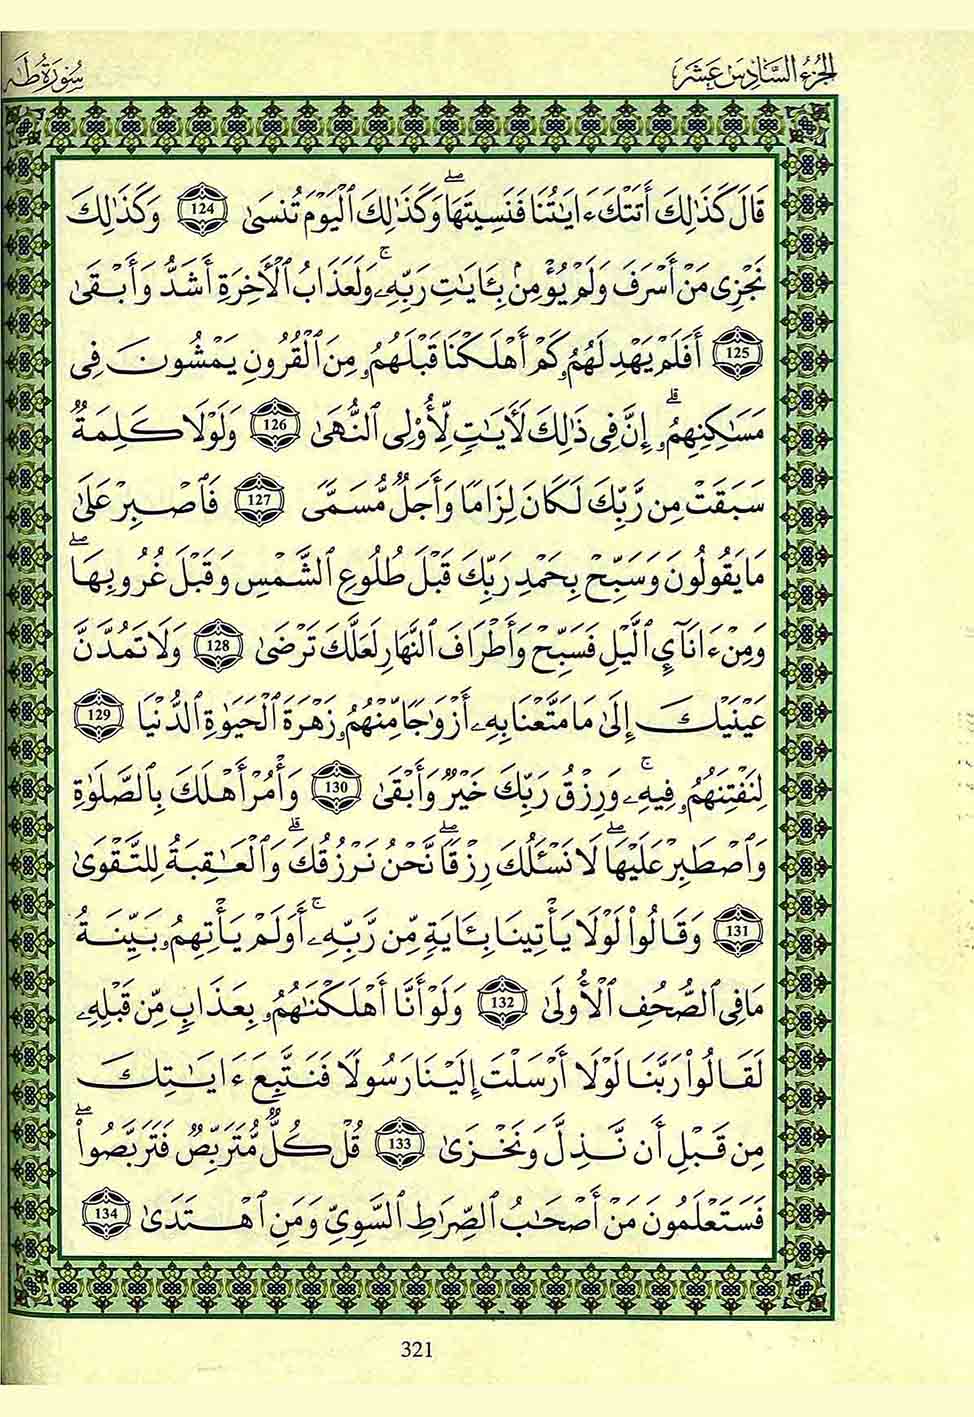 الجزء السادس عشر
سورة طه
قَالَ كَذَٰلِكَ أَتَتْكَ ءَايَٰتُنَا فَنَسِيتَهَاۖ وَكَذَٰلِكَ ٱلْيَوْمَ تُنسَىٰ 124 وَكَذَٰلِكَ
نَجْزِى مَنْ أَسْرَفَ وَلَمْ يُؤْمِنۢ بِـَٔايَٰتِ رَبِّهِۦۚ وَلَعَذَابُ ٱلْأَخِرَةِ أَشَدُّ وَأَبْقَىٰ
125 أَفَلَمْ يَهْدِ لَهُمُۥ كَمْ أَهْلَكْنَا قَبْلَهُمُۥ مِنَ ٱلْقُرُونِ يَمْشُونَ فِى
مَسَٰكِنِهِمُۥۗ إِنَّ فِى ذَٰلِكَ لَأَيَٰتٍ لِّأُوْلِى ٱلنُّهَىٰ 126 وَلَوْلَا كَلِمَةٌ
سَبَقَتْ مِن رَّبِّكَ لَكَانَ لِزَامًا وَأَجَلٌ مُّسَمًّى 127 فَٱصْبِرْ عَلَىٰ
مَا يَقُولُونَ وَسَبِّحْ بِحَمْدِ رَبِّكَ قَبْلَ طُلُوعِ ٱلشَّمْسِ وَقَبْلَ غُرُوبِهَاۖ
وَمِنْ ءَانَآيِٕ ٱلَّيْلِ فَسَبِّحْ وَأَطْرَافَ ٱلنَّهَارِ لَعَلَّكَ تَرْضَىٰ 128 وَلَا تَمُدَّنَّ
عَيْنَيْكَ إِلَىٰ مَا مَتَّعْنَا بِهِۦ أَزْوَٰجًا مِّنْهُمُۥ زَهْرَةَ ٱلْحَيَوٰةِ ٱلدُّنْيَا 129
لِنَفْتِنَهُمُۥ فِيهِۦۚ وَرِزْقُ رَبِّكَ خَيْرٌ وَأَبْقَىٰ 130 وَأْمُرْ أَهْلَكَ بِٱلصَّلَوٰةِ
وَٱصْطَبِرْ عَلَيْهَاۖ لَا نَسْـَٔلُكَ رِزْقًاۖ نَّحْنُ نَرْزُقُكَۗ وَٱلْعَٰقِبَةُ لِلتَّقْوَىٰ
131 وَقَالُوا۟ لَوْلَا يَأْتِينَا بِـَٔايَةٍ مِّن رَّبِّهِۦۚ أَوَلَمْ يَأْتِهِمُۥ بَيِّنَةُ
مَا فِى ٱلصُّحُفِ ٱلْأُولَىٰ 132 وَلَوْ أَنَّا أَهْلَكْنَٰهُمُۥ بِعَذَابٍ مِّن قَبْلِهِۦ
لَقَالُوا۟ رَبَّنَا لَوْلَا أَرْسَلْتَ إِلَيْنَا رَسُولًا فَنَتَّبِعَ ءَايَٰتِكَ
مِن قَبْلِ أَن نَّذِلَّ وَنَخْزَىٰ 133 قُلْ كُلٌّ مُّتَرَبِّصٌ فَتَرَبَّصُوا۟ۖ
فَسَتَعْلَمُونَ مَنْ أَصْحَٰبُ ٱلصِّرَٰطِ ٱلسَّوِىِّ وَمَنِ ٱهْتَدَىٰ 134
321